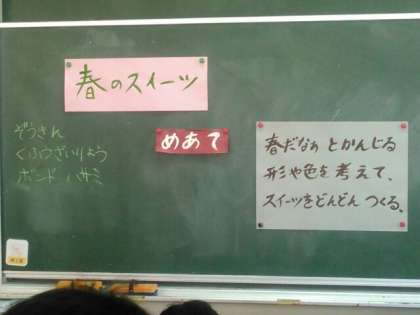 春のスイーツ
ぞうきん
くふうざいりょう
ボンド ハサミ
めあて
春だなぁ とかんじる
形や色を 考えて、
スイーツをどんどん つくる。